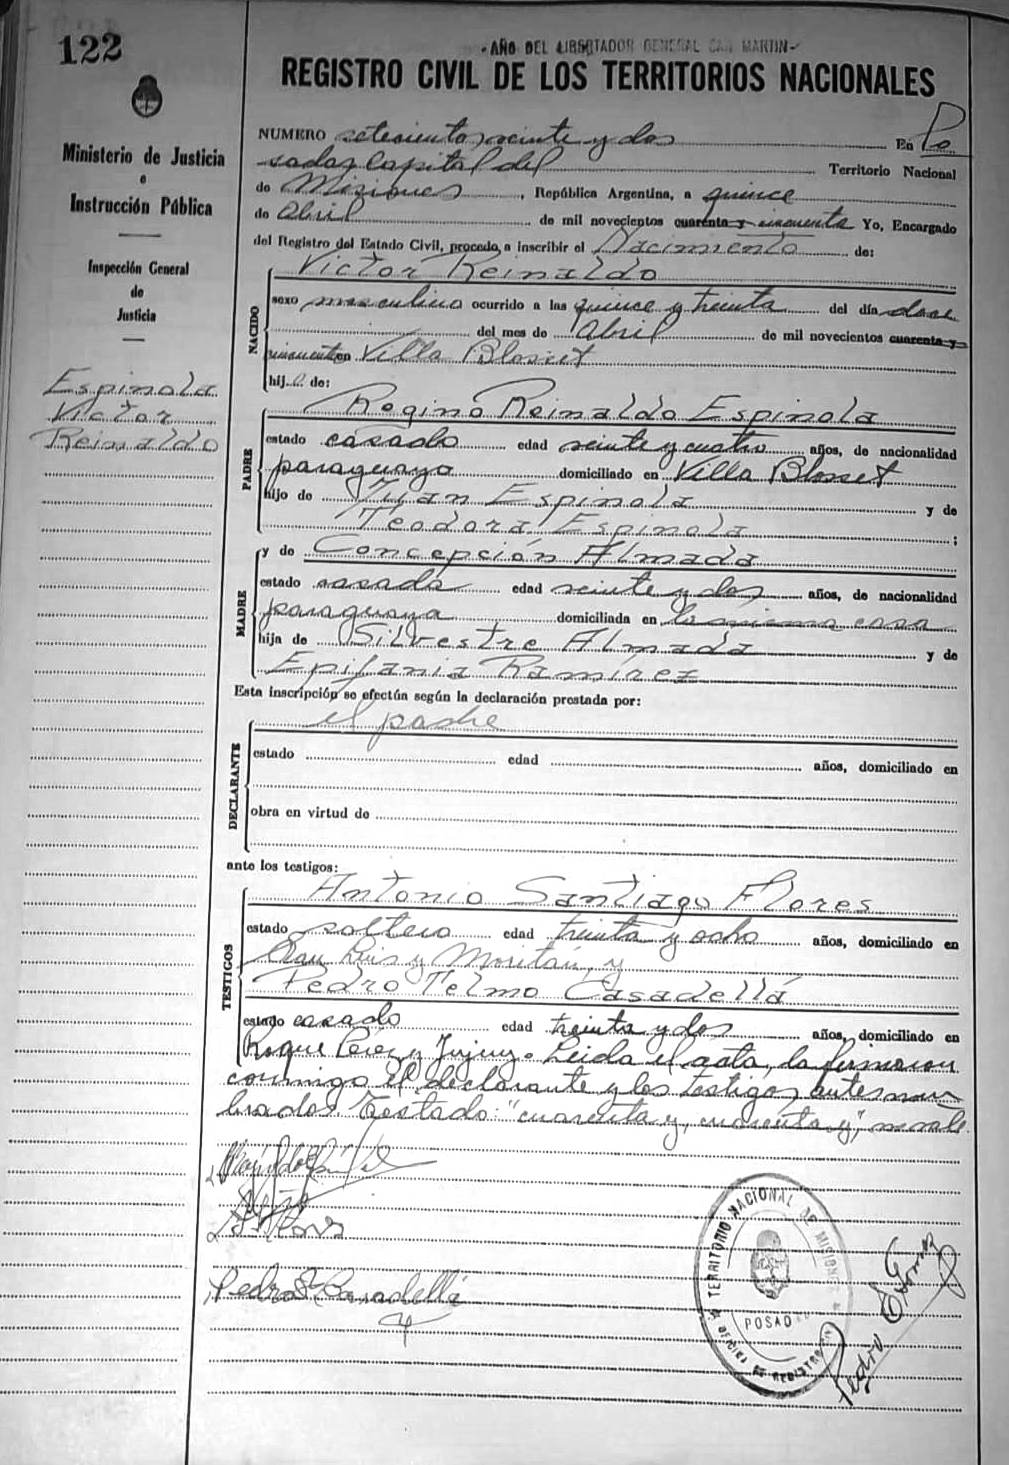 122
- AÑO DEL LIBERTADOR GENERAL SAN MARTIN -
REGISTRO CIVIL DE LOS TERRITORIOS NACIONALES
Ministerio de Justicia
e
Instrucción Pública
Inspección General
de
Justicia
Espinola
Victor
Reinaldo
NUMERO setecientos veinte y dos En Po
sadas Capital del Territorio Nacional
de Misiones, República Argentina, a quince
de Abril de mil novecientos cuarenta y cincuenta Yo, Encargado
del Registro del Estado Civil, procedo a inscribir el Nacimiento de:
NACIDO
Victor Reinaldo
sexo masculino ocurrido a las quince y treinta del día doce
del mes de Abril de mil novecientos cuarenta y
cincuenta en Villa Blosset
hij o de:
PADRE
Regino Reinaldo Espinola
estado casado edad veinte y cuatro años, de nacionalidad
paraguayo domiciliado en Villa Blosset
hijo de Juan Espinola y de
Teodora Espinola ;
MADRE
y de Concepción Almada
estado casada edad veinte y dos años, de nacionalidad
paraguaya domiciliada en la misma casa
hija de Silvestre Almada y de
Epifania Ramírez
Esta inscripción se efectúa según la declaración prestada por:
DECLARANTE
el padre
estado edad años, domiciliado en
obra en virtud de
ante los testigos:
TESTIGOS
Antonio Santiago Flores
estado soltero edad treinta y ocho años, domiciliado en
San Luis y Moritán, y
Pedro Telmo Casadellá
estado casado edad treinta y dos años, domiciliado en
Roque Perez y Jujuy. Leida el acta, la firmaron
conmigo el declarante y los testigos antes nom
brados. Testado: "cuarenta y, cuarenta y", no vale.
Pedro T. Casadellá
TERRITORIO NACIONAL DE MISIONES
POSADAS
Pedro E. Gomez